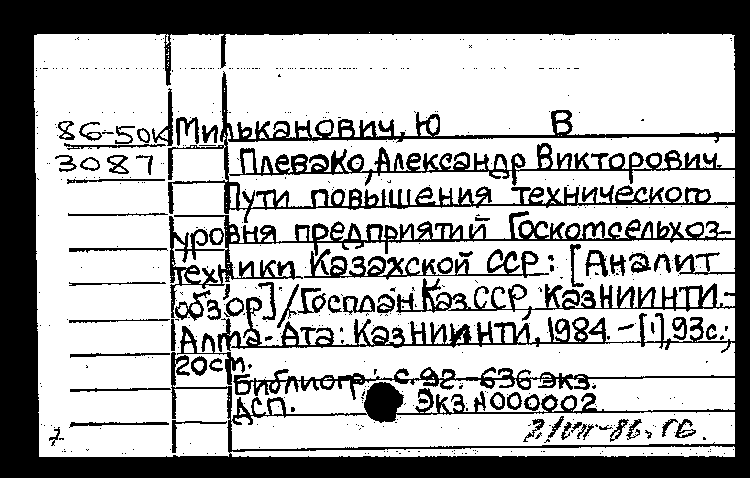 86-50к Мильканович, Ю В
3087 Плевако, Александр Викторович.
Пути повышения технического
уровня предприятий Госкотсельхоз-
техники Казахской ССР: [Аналит
обзор]/Госплан Каз.ССР, КазНИИНТИ.-
Алма-Ата: КазНИИНТИ, 1984.-[1],93с.;
20см.
Библиогр.: с.92.-636 экз.
ДСП. Экз.N000002
7 2/VII-86. ГБ.